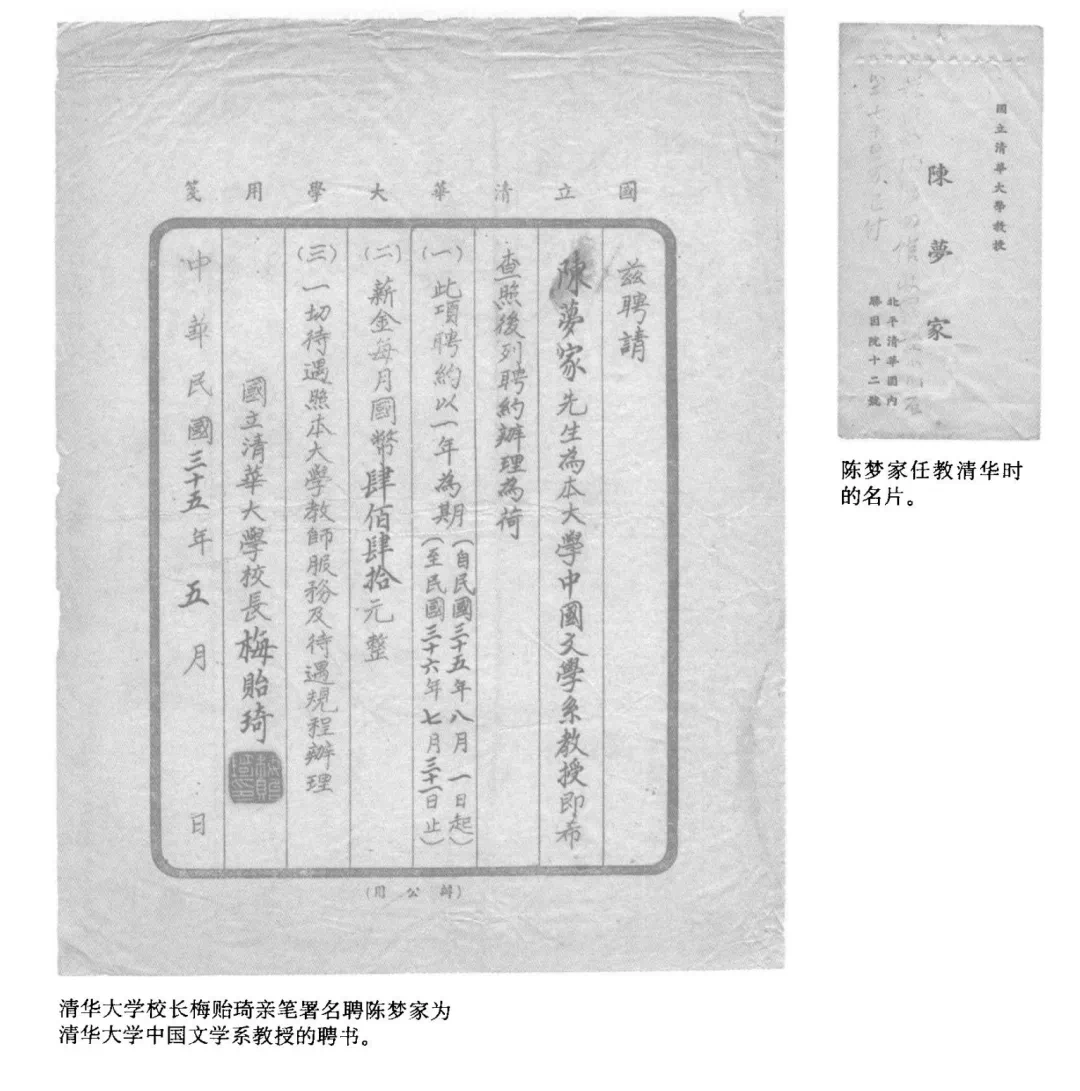 國立清華大學用箋
茲聘請
陳夢家先生為本大學中國文學系教授即希
查照後列聘約辦理為荷
(一) 此項聘約以一年為期(自民國三十五年八月一日起)
(至民國三十六年七月三十一日止)
(二) 薪金每月國幣肆佰肆拾元整
(三) 一切待遇照本大學教師服務及待遇規程辦理
國立清華大學校長梅貽琦
中華民國三十五年五月 日
(辦公用)
國立清華大學教授
陳夢家
北平清華園內
勝因院十二號
陈梦家任教清华时
的名片。
清华大学校长梅贻琦亲笔署名聘陈梦家为
清华大学中国文学系教授的聘书。